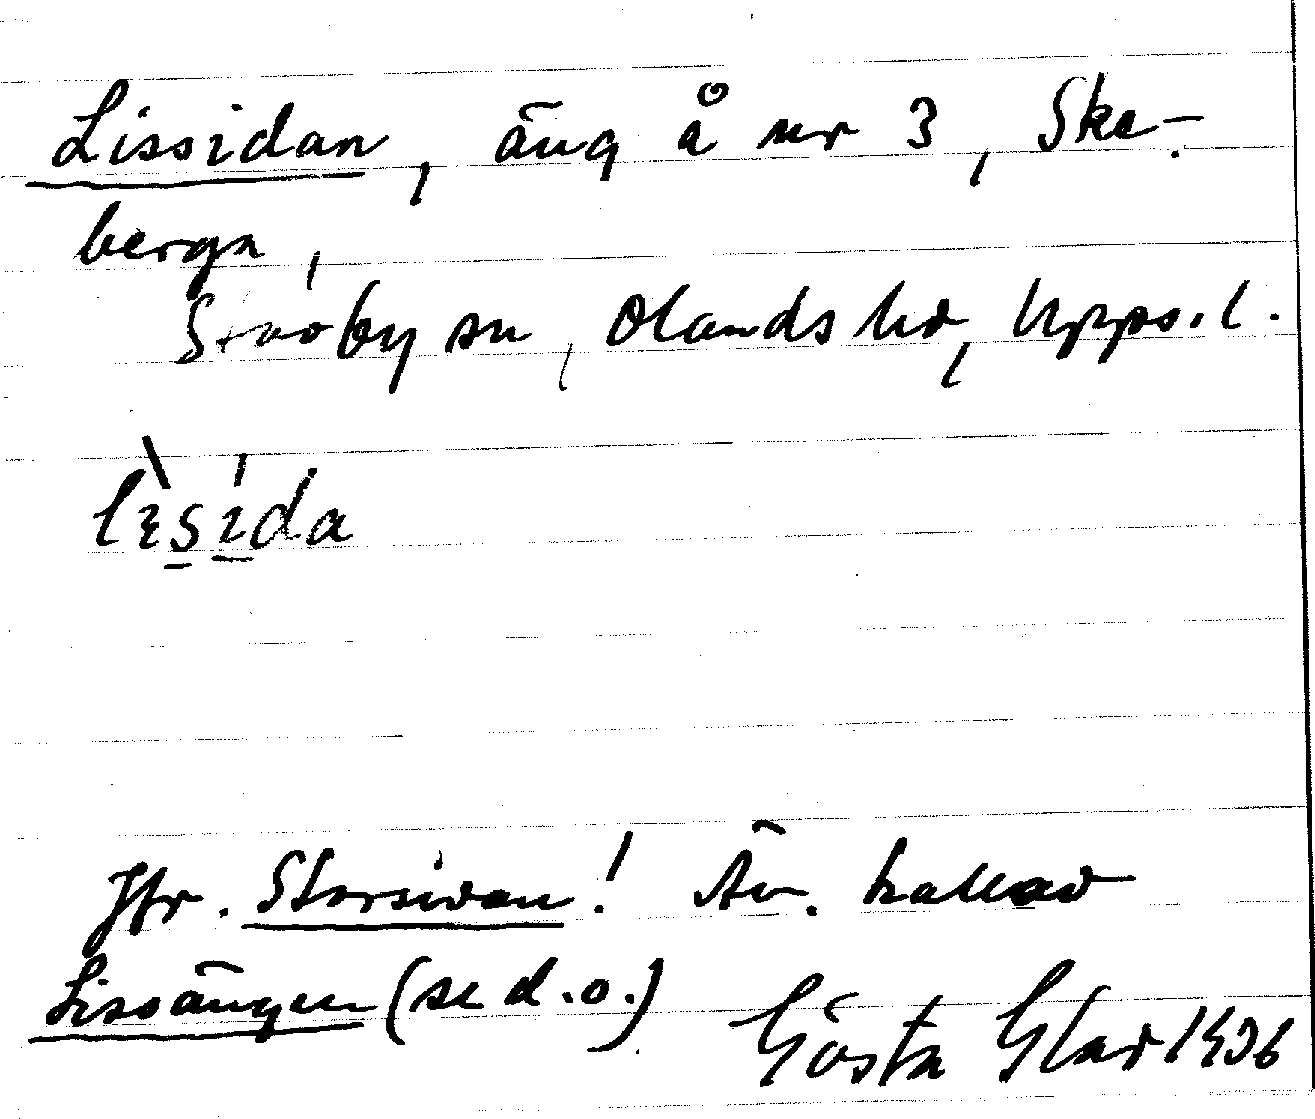 Lissidan, äng å nr 3, Ske-
berga,
Stavby sn, Olands hd, Upps. l.
lìsída
Jfr. Storsidan! Äv. kallad
Lissängen (se d.o.)
Gösta Glad 1936